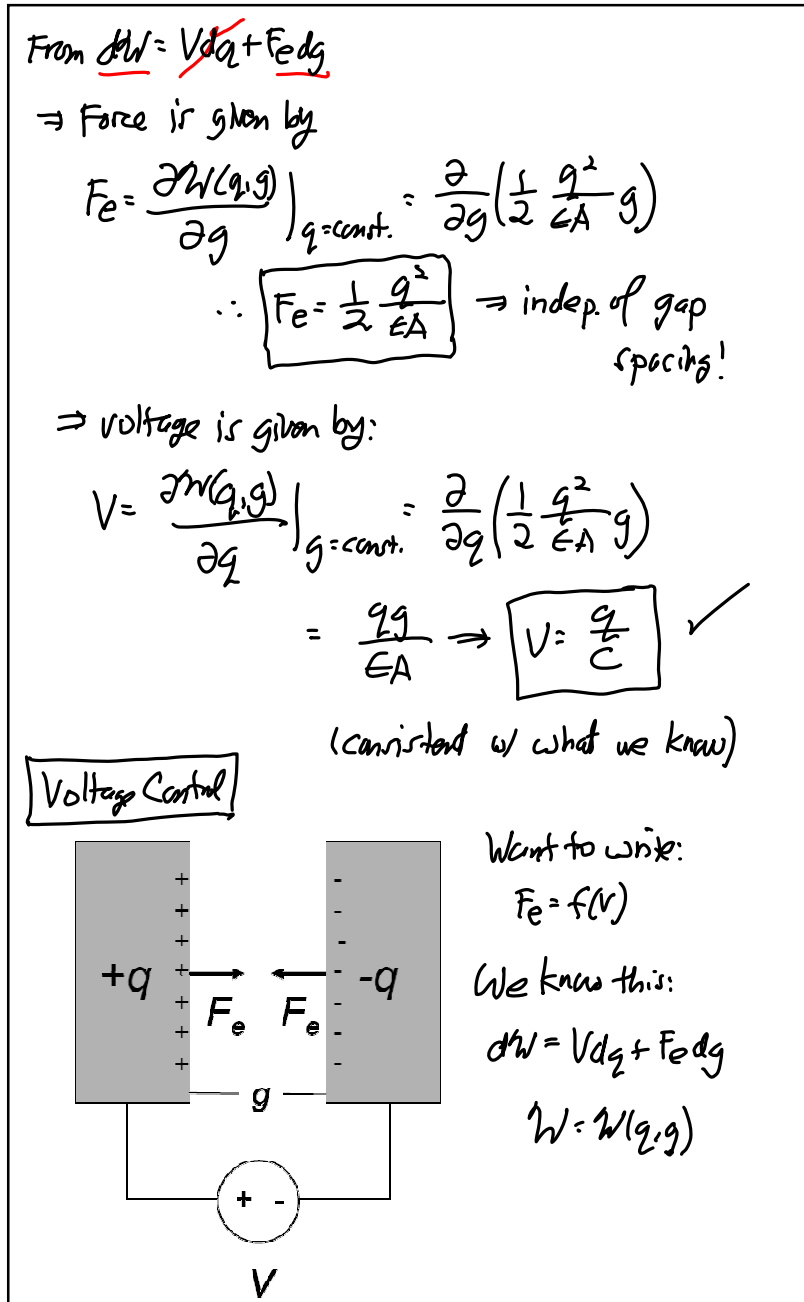 From dW = Vdq + Fedg
⇒ Force is given by
Fe = ∂W(q,g)/∂g |q=const. = ∂/∂g (1/2 q²/εA g)
∴ Fe = 1/2 q²/εA ⇒ indep. of gap
spacing!
⇒ voltage is given by:
V = ∂W(q,g)/∂q |g=const. = ∂/∂q (1/2 q²/εA g)
= qg/εA ⇒ V = q/C ✓
(consistent w/ what we know)
Voltage Control
Want to write:
Fe = f(V)
We know this:
dW = Vdq + Fedg
W = W(q,g)
+ + + + + + +
- - - - - - -
+q
-q
Fe Fe
g
+ -
V